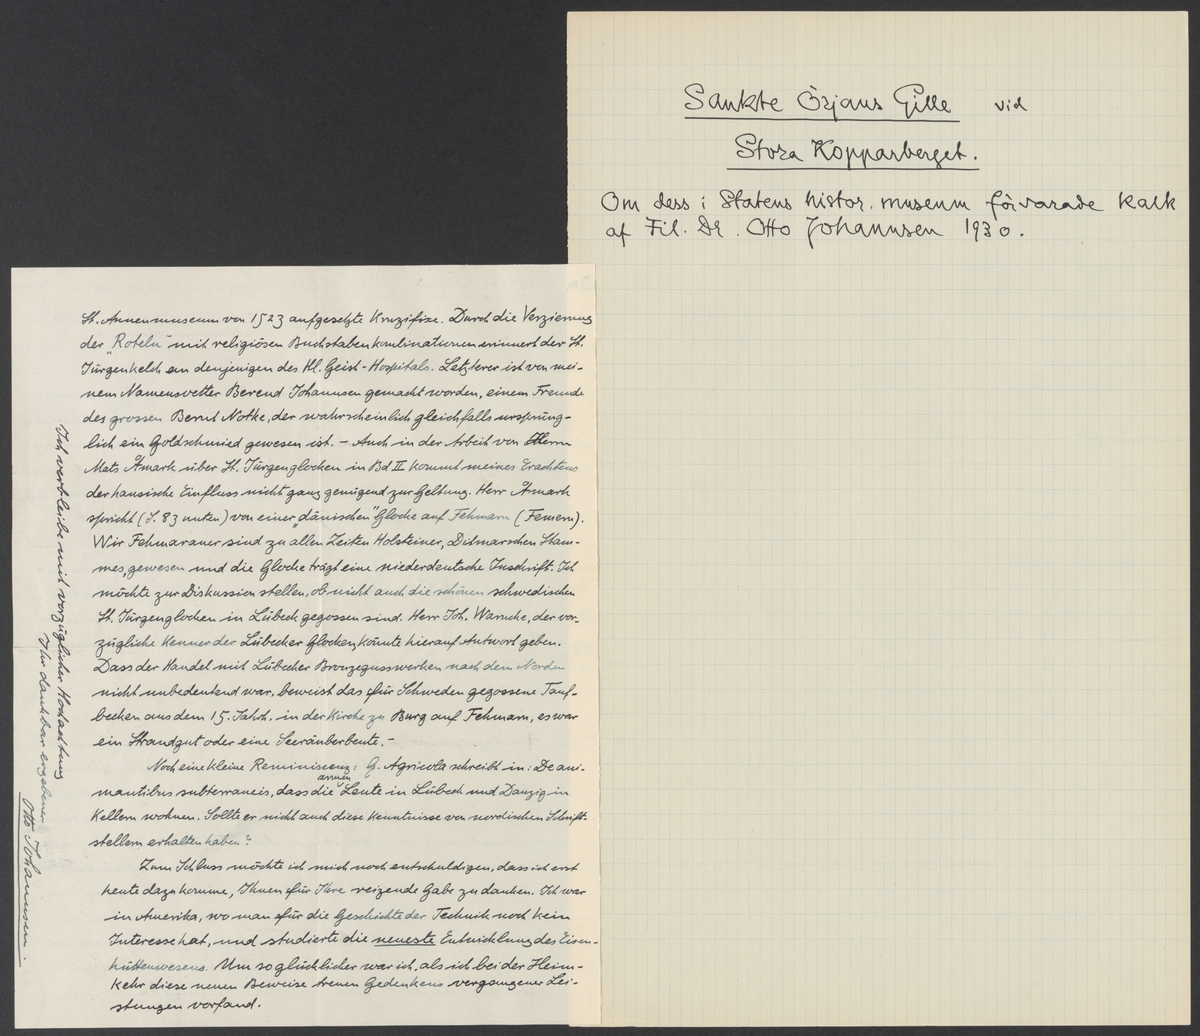 Sankte Örjans Gille vid
Stora Kopparberget.
Om dess i Statens histor. museum förvarade kalk
af Fil. Dr. Otto Johannsen 1930.
St. Annenmuseum von 1523 aufgesetzte Kruzifixe. Durch die Verzierung
der "Roteln" mit religiösen Buchstabenkombinationen erinnert der St.
Jürgenkelch an denjenigen des Hl. Geist-Hospitals. Letzterer ist von mei-
nem Namensvetter Berend Johannsen gemacht worden, einem Freunde
des grossen Bernt Notke, der wahrscheinlich gleichfalls ursprüng-
lich ein Goldschmied gewesen ist. - Auch in der Arbeit von Herrn
Mats Åmark über St. Jürgenglocken in Bd II kommt meines Erachtens
der hansische Einfluss nicht ganz genügend zur Geltung. Herr Åmark
spricht (S. 83 unten) von einer "dänischen" Glocke auf Fehmarn (Femern).
Wir Fehmaraner sind zu allen Zeiten Holsteiner, Ditmarschen Stam-
mes, gewesen und die Glocke trägt eine niederdeutsche Inschrift. Ich
möchte zur Diskussion stellen, ob nicht auch die schönen schwedischen
St. Jürgenglocken in Lübeck gegossen sind. Herr Joh. Warncke, der vor-
zügliche Kenner der Lübecker Glocken, könnte hierauf Antwort geben.
Dass der Handel mit Lübecker Bronzegusswerken nach dem Norden
nicht unbedeutend war, beweist das für Schweden gegossene Tauf-
becken aus dem 15. Jahrh. in der Kirche zu Burg auf Fehmarn, es war
ein Strandgut oder eine Seeräuberbeute. -
Noch eine kleine Reminiscenz: G. Agricola schreibt in: De ani-
mantibus subterraneis, dass die armen Leute in Lübeck und Danzig in
Kellern wohnen. Sollte er nicht auch diese Kenntnisse von nordischen Schrift-
stellern erhalten haben?
Zum Schluss möchte ich mich noch entschuldigen, dass ich erst
heute dazu komme, Ihnen für Ihre reizende Gabe zu danken. Ich war
in Amerika, wo man für die Geschichte der Technik noch kein
Interesse hat, und studierte die neueste Entwicklung des Eisen-
hüttenwesens. Um so glücklicher war ich, als ich bei der Heim-
kehr diese neuen Beweise treuen Gedenkens vergangener Lei-
stungen vorfand.
Ich verbleibe mit vorzüglicher Hochachtung
Ihr dankbar ergebener
Otto Johannsen.